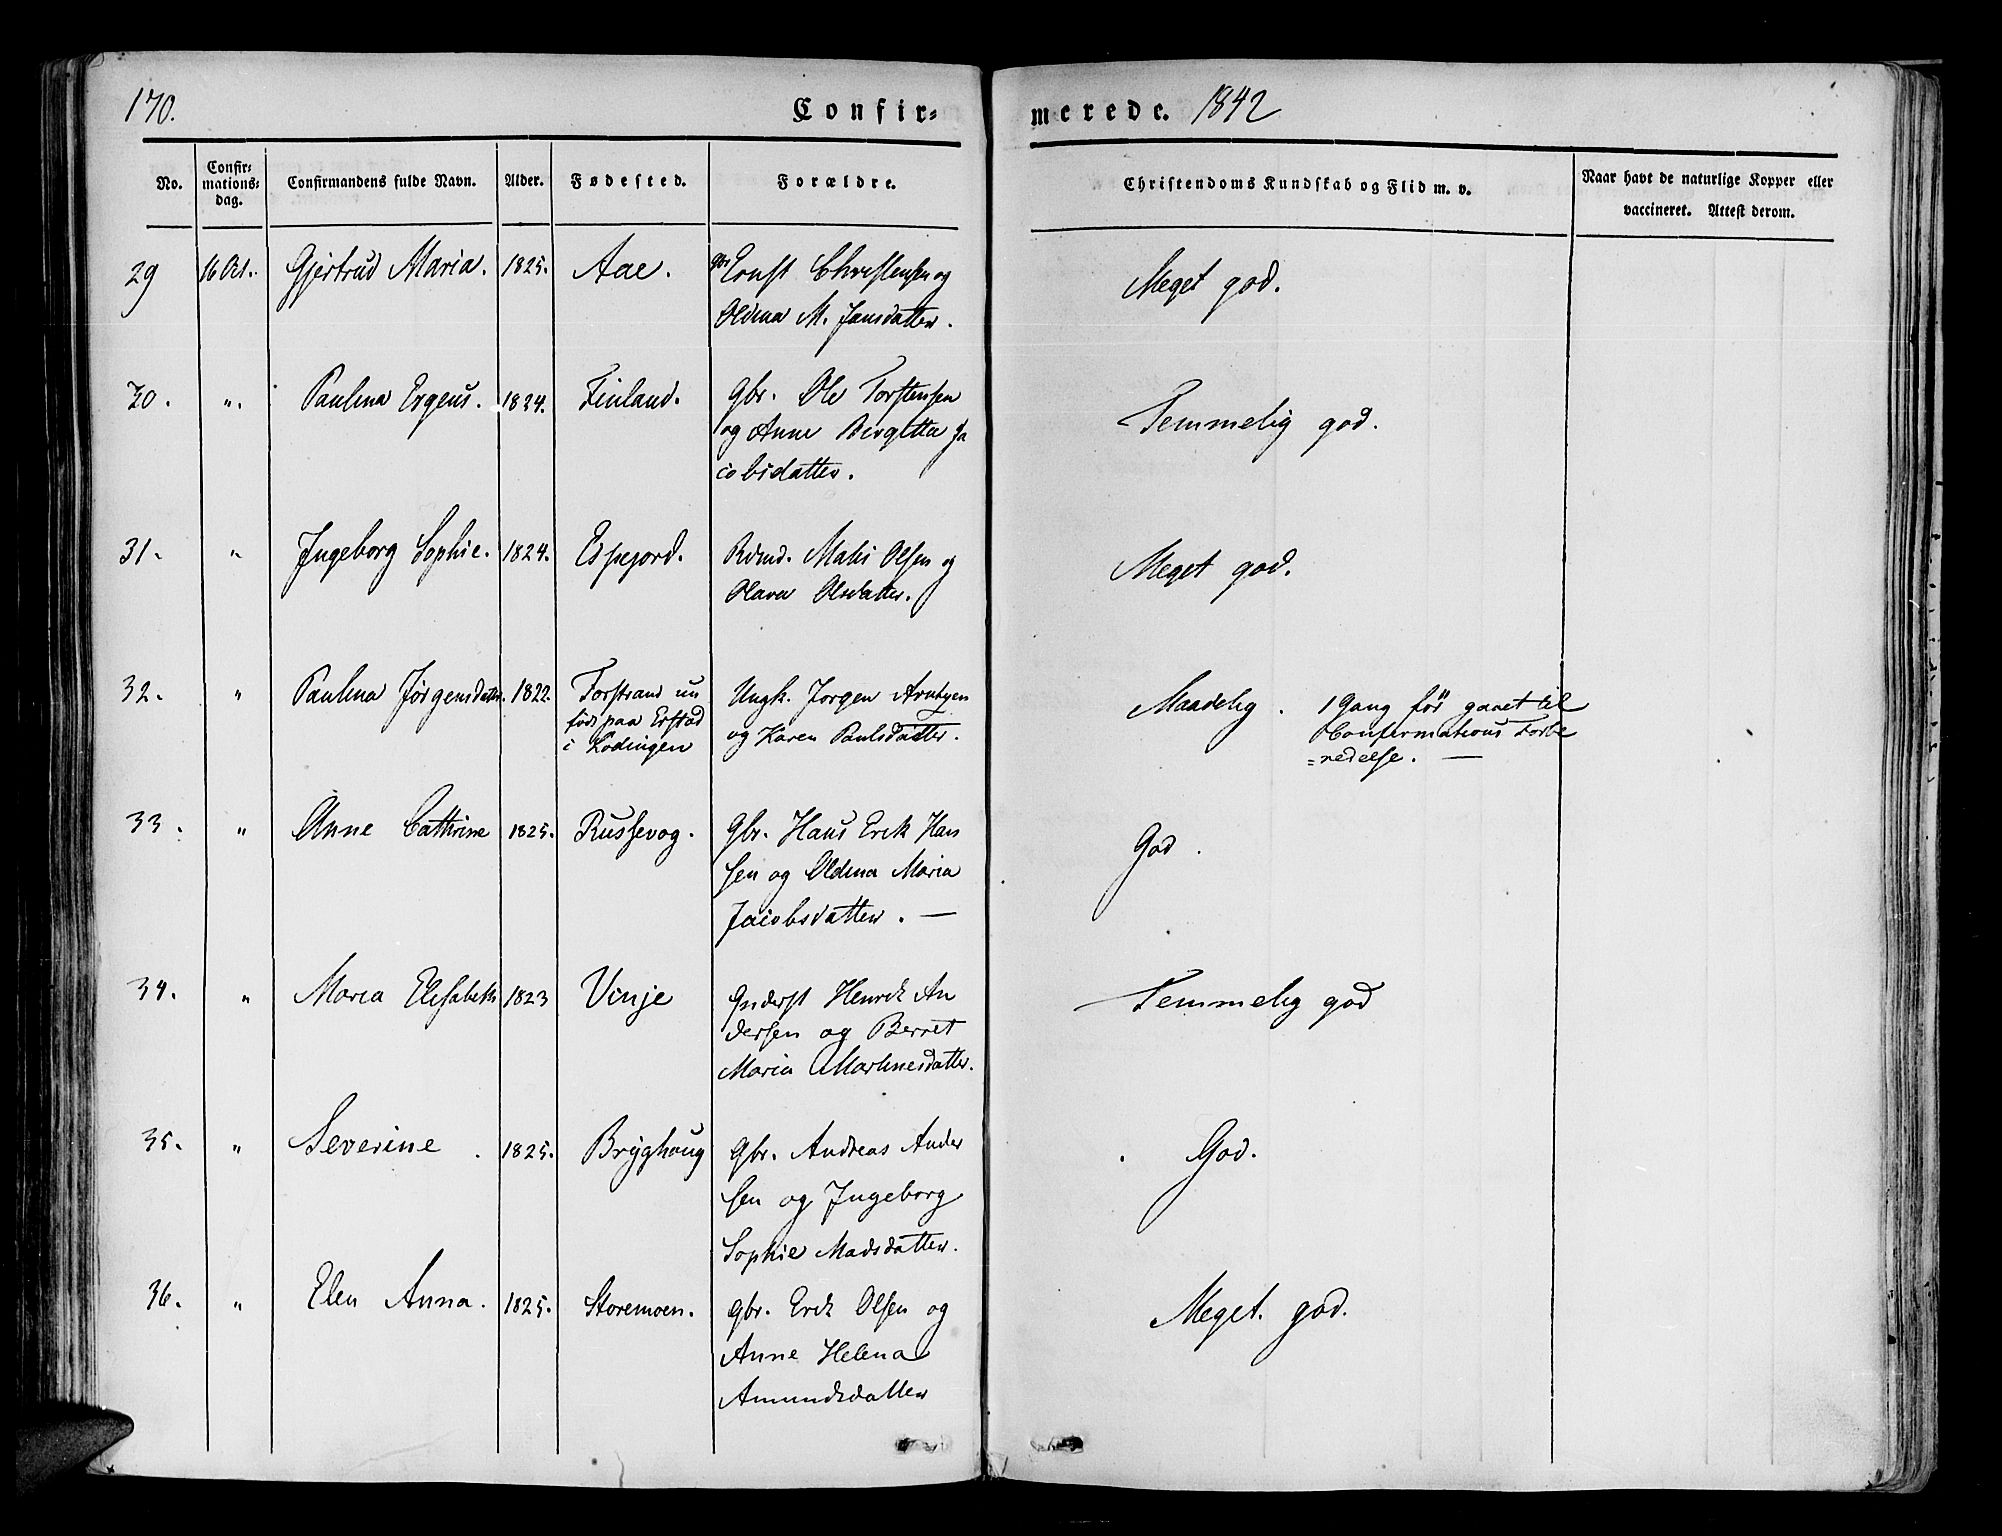 170.
Confir=
merede. 1842
No.
Confir=
mations=
dag.
Confirmandens fulde Navn.
Alder.
Fødested.
Forældre.
Christendoms Kundskab og Flid m. v.
Naar havt de naturlige Kopper eller
vaccineret. Attest derom.
29 16 Oct. Gjertrud Maria. 1825. Aae. Gbr Ernst Christensen og
Oldina M. Jansdatter.
Meget god.
30. " Paulina 1824. Finland. Gbr. Ole Torstensen
og Anne Birgitta Ja
cobsdatter.
Temmelig god.
31. " Ingeborg Sophie. 1824. Espejord. Rdmd. Mats Olsen og
Olava Olsdatter.
Meget god.
32. " Paulina Jørgensdatter. 1822. Forstrand un
født paa Erstad
i Lødingen
Ungk. Jørgen Arntzen
og Karen Paulsdatter.
Maadelig. 1 Gang før gaaet til
Confirmations Forbe
=redelse. —
33. " Anne Cathrine 1825. Russevog. Gbr. Hans Erik Han
sen og Oldina Maria
Jacobsdatter. —
God.
34. " Maria Elisabeth 1823 Vinje Inderst Henrik An
dersen og Berret
Maria Martinesdatter.
Temmelig god
35. " Severine. 1825. Brÿghaug Gbr. Andreas Ander
sen og Ingeborg
Sophie Madsdatter.
God.
36. " Elen Anna. 1825. Storemoen. Gbr. Erik Olsen og
Anne Helena
Amundsdatter
Meget god.